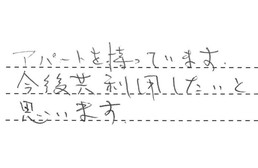 アパートを持っています.
今後共利用したいと
思います